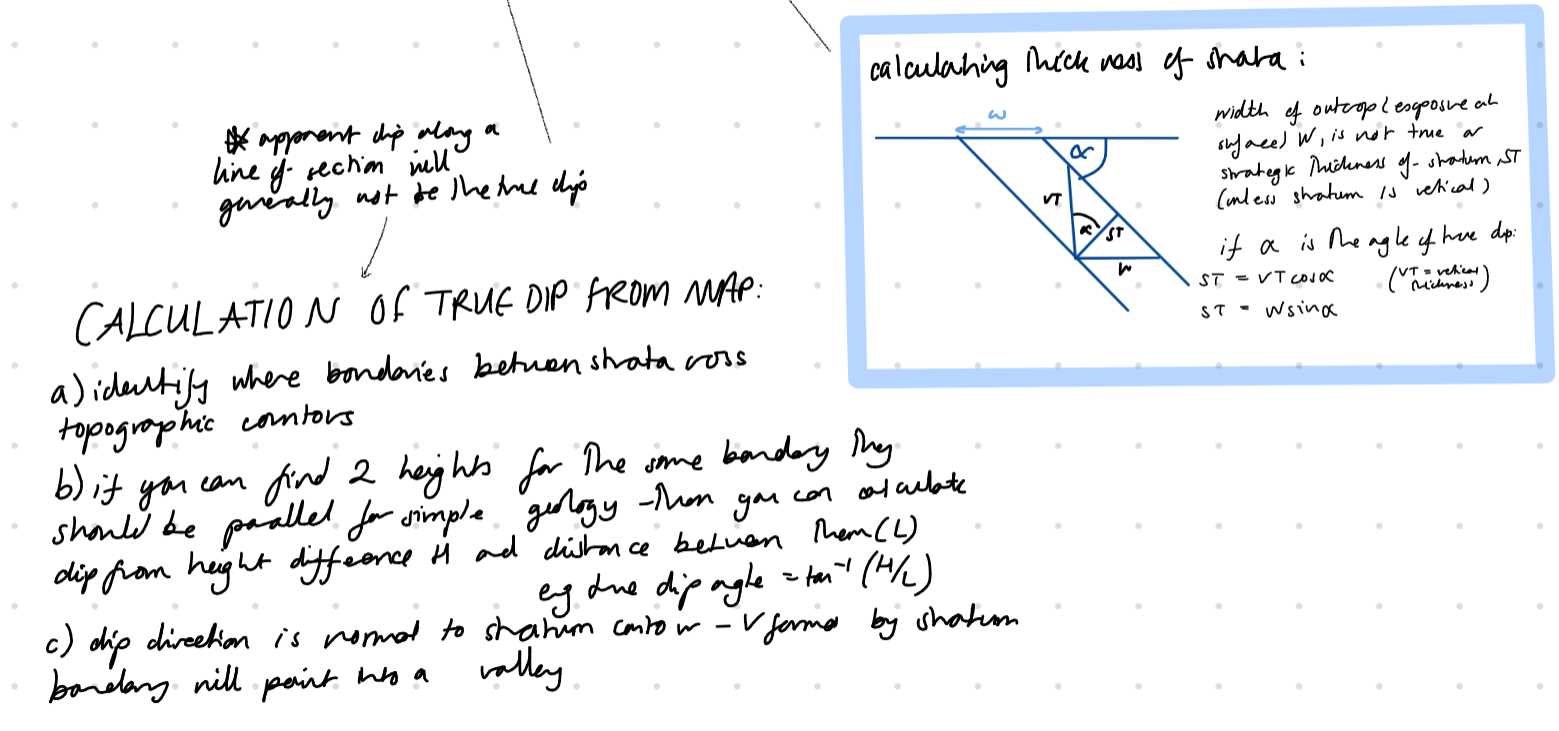 * apparent dip along a
line of section will
generally not be the true dip
CALCULATION OF TRUE DIP FROM MAP:
a) identify where bondaries between strata cross
topographic contors
b) if you can find 2 heights for the same bondary they
should be parallel for simple geology - then you can calculate
dip from height difference H and distance between them (L)
eg true dip angle = tan⁻¹ (H/L)
c) dip direction is normal to stratum contour - V formed by stratum
bondary will point into a valley
calculating thickness of strata:
w
α
VT
α
ST
w
width of outcrop (exposure at
surface) W, is not true or
strategic thickness of stratum, ST
(unless stratum is vertical)
if α is the angle of true dip:
ST = VT cosα (VT = vertical
thickness)
ST = W sinα